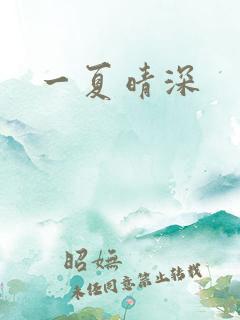 一夏晴深
昭妩
未经同意禁止转载